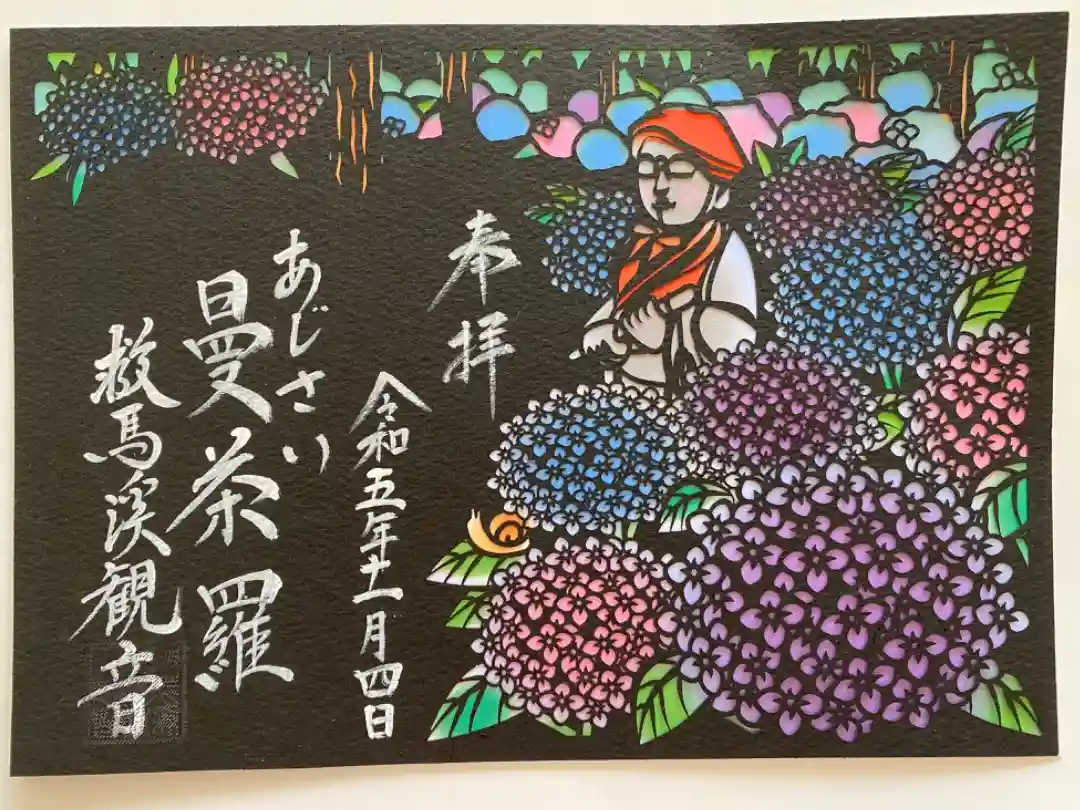 奉拝
令和五年十一月四日
あじさい
曼荼羅
救馬渓観音